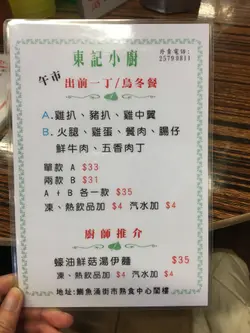 外賣電話:
25798811
東記小廚
午市
出前一丁/烏冬餐
A.雞扒、豬扒、雞中翼
B.火腿、雞蛋、餐肉、腸仔
鮮牛肉、五香肉丁
單款 A $33
兩款 B $31
A + B 各一款 $35
凍、熱飲品加 $4 汽水加 $4
廚師推介
蠔油鮮菇湯伊麵 $35
凍、熱飲品加 $4 汽水加 $4
地址:鰂魚涌街市熟食中心閣樓